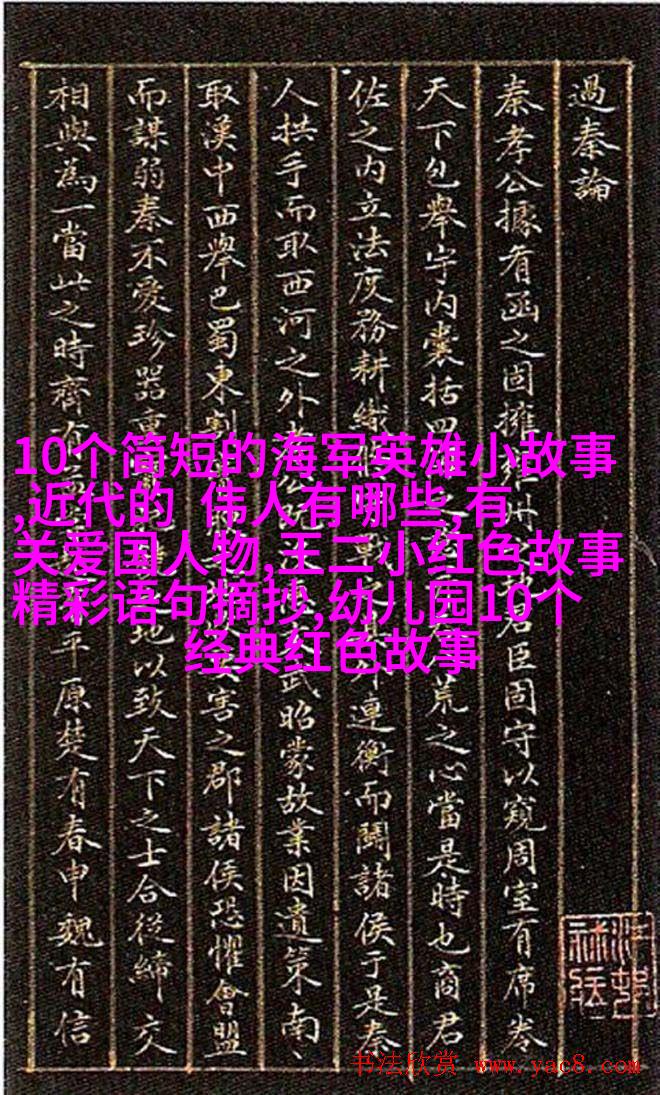 過秦論
秦孝公據有函之固擁州君臣固守以窺周室有席卷
天下包舉宇内囊括四荒之心當是時也商君
佐之内立法度務耕織連衡而鬪諸侯于是秦
人拱手而取西河之外武昭蒙故業因遺策南、
取漢中西舉巴蜀東割害之郡諸侯恐懼會盟
而謀弱秦不愛珍器重地以致天下之士合從締交
相與為一當此之時齊有平原楚有春申魏有信
10个简短的海军英雄小故事
,近代的 伟人有哪些,有
关爱国人物,王二小红色故事
精彩语句摘抄,幼儿园10个
经典红色故事
书法欣赏 www.yac8.com